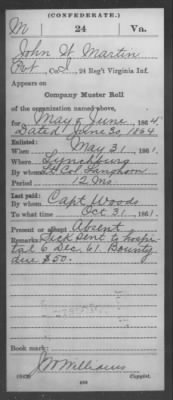 (CONFEDERATE.)
M 24 Va.
John W. Martin
Pvt, Co. I, 24 Reg't Virginia Inf.
Appears on
Company Muster Roll
of the organization named above,
for May & June, 1864.
Dated June 30 1864
Enlisted:
When May 31, 1861.
Where Lynchburg
By whom Lt. Col. Langhorn
Period 12 Mo
Last paid:
By whom Capt Woods
To what time Oct 31, 1861.
Present or absent Absent
Remarks: Sick sent to hospi-
tal 6 Dec. 61. Bounty
due $50.
Book mark:
JW Williams
(642) Copyist.